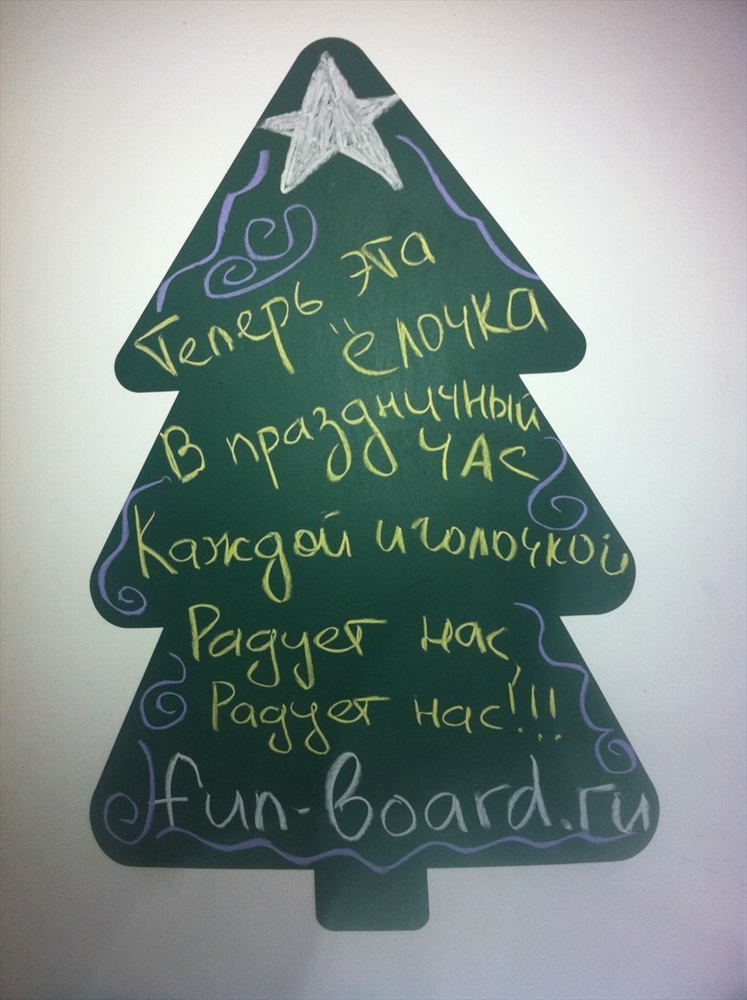 Теперь эта
ёлочка
В праздничный
ЧАС
Каждой иголочкой
Радует нас,
Радует нас!!!
fun-board.ru